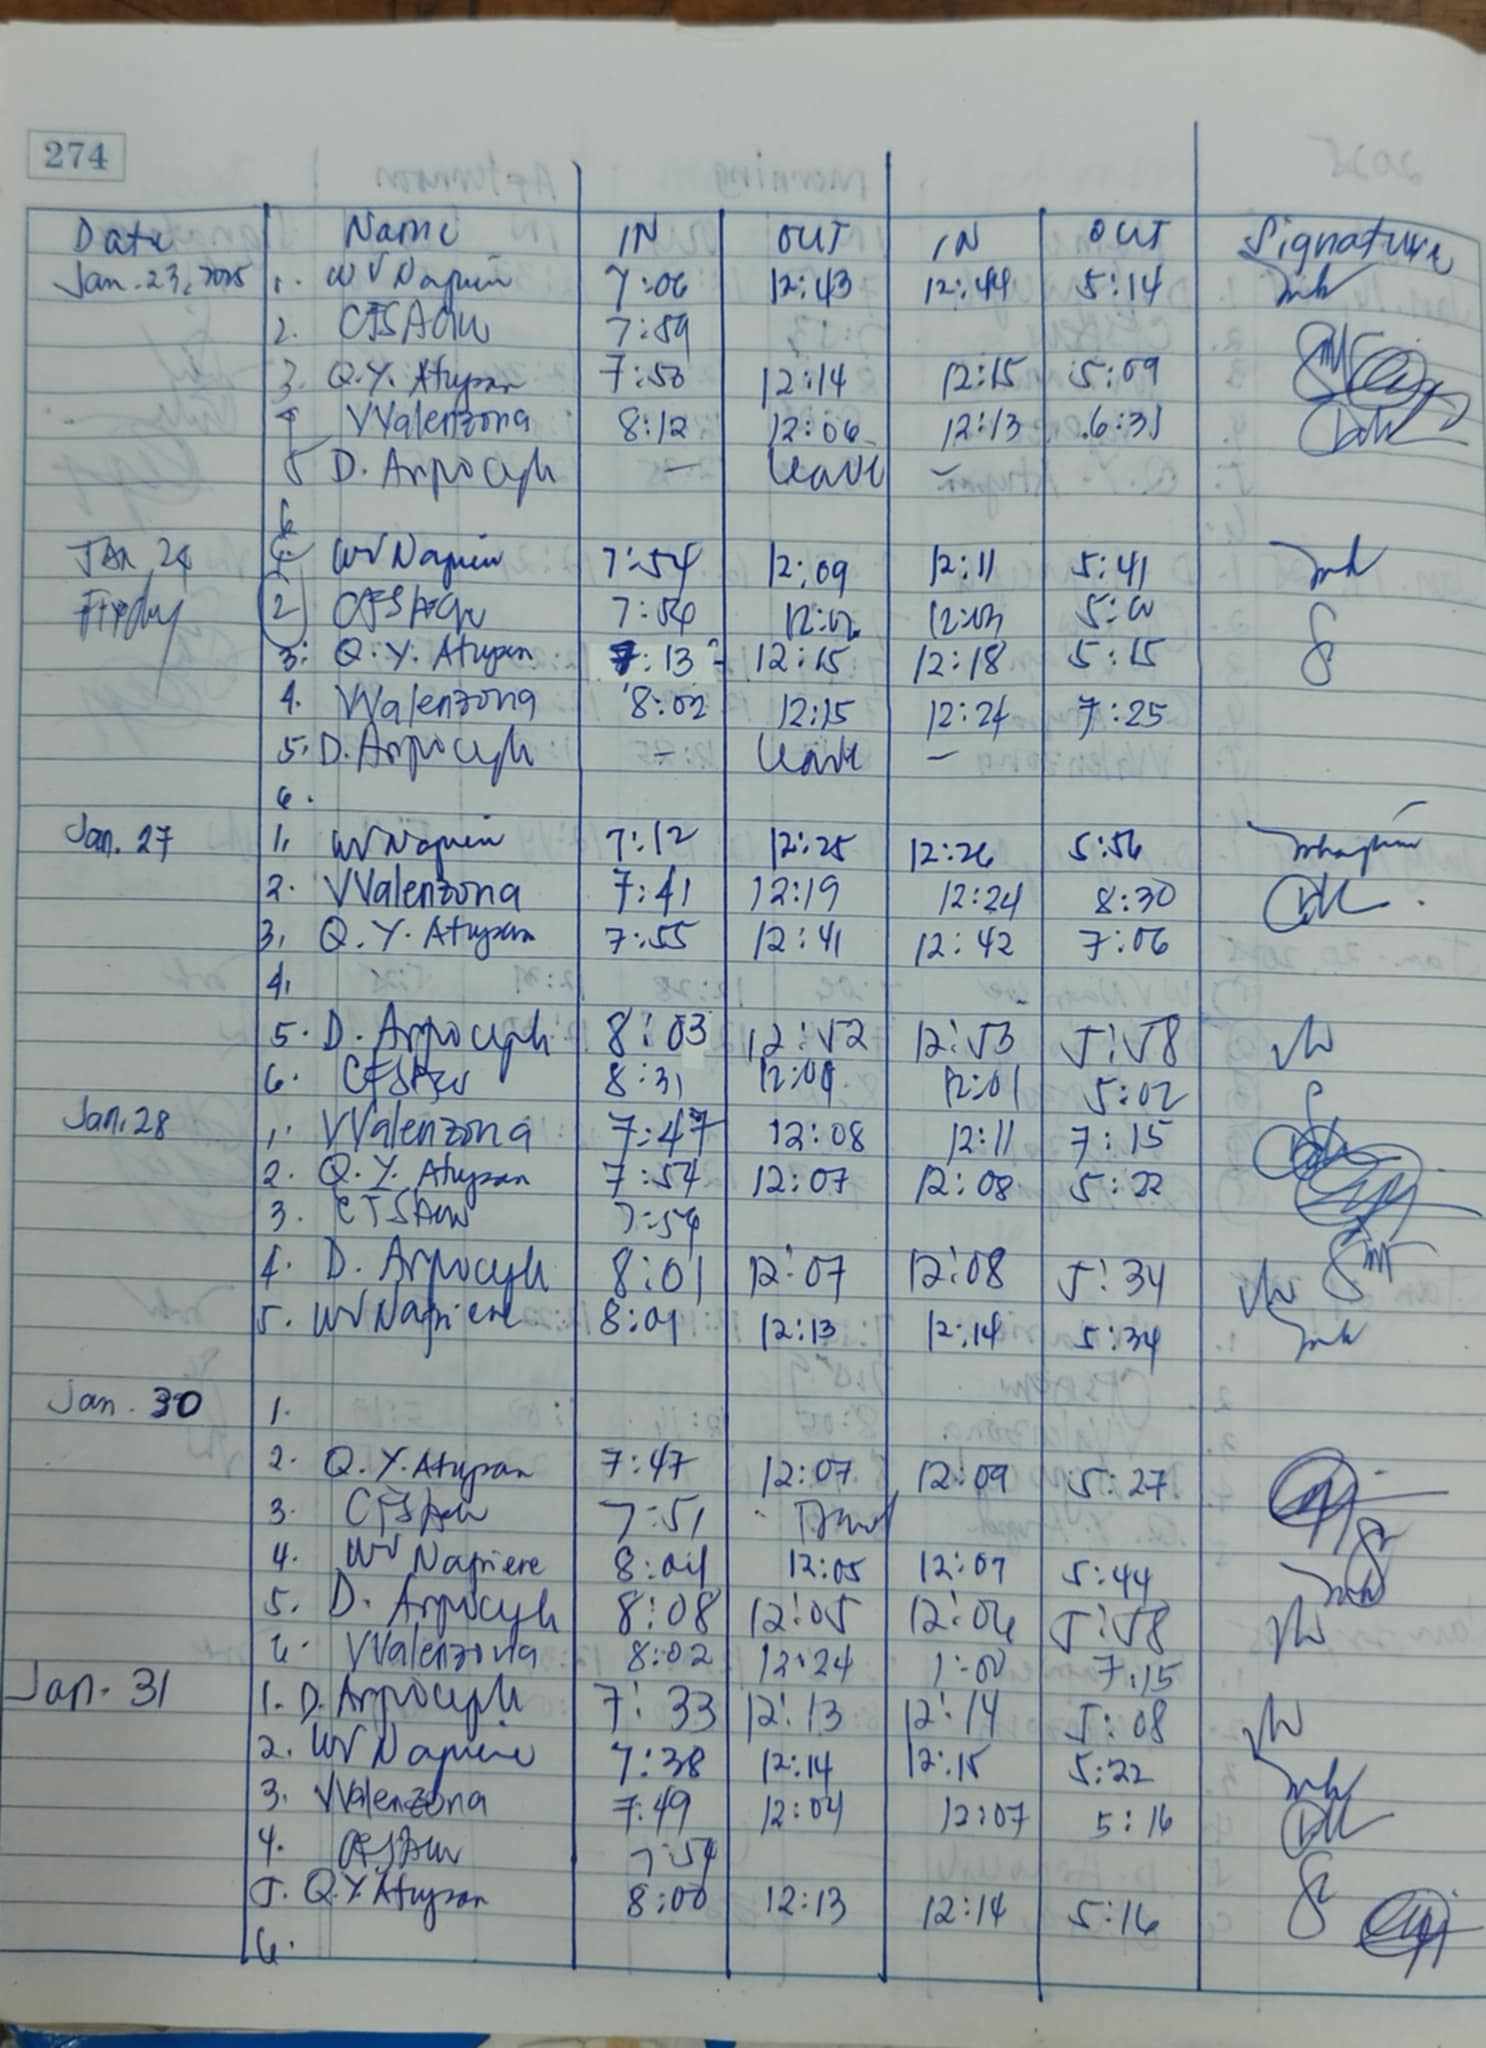 274
Date Name IN OUT IN OUT Signature
Jan. 23, 2025 1. WV Napiere 7:06 12:43 12:44 5:14
2. 7:59
3. Q.Y. Atupan 7:50 12:14 12:15 5:09
4 VValenzona 8:12 12:06 12:13 6:31
5 D. Arpocyh — leave —
6
Jan 24 1. WV Napiere 7:54 12:09 12:11 5:41
Friday 2 7:54 12:02 12:03 5:00
3. Q.Y. Atupan 7:13 12:15 12:18 5:15
4. VValenzona 8:02 12:15 12:24 7:25
5. D. Arpocyh — leave —
6.
Jan. 27 1. WV Napiere 7:12 12:25 12:26 5:56
2. VValenzona 7:41 12:19 12:24 8:30
3. Q.Y. Atupan 7:55 12:41 12:42 7:06
4.
5. D. Arpocyh 8:03 12:52 12:53 5:58
6. 8:31 12:01 5:02
Jan. 28 1. VValenzona 7:47 12:08 12:11 7:15
2. Q.Y. Atupan 7:54 12:07 12:08 5:22
3. 7:54
4. D. Arpocyh 8:01 12:07 12:08 5:34
5. WV Napiere 8:01 12:13 12:14 5:34
Jan. 30 1.
2. Q.Y. Atupan 7:47 12:07 12:09 5:27
3. 7:51
4. WV Napiere 8:04 12:05 12:07 5:44
5. D. Arpocyh 8:08 12:05 12:06 5:58
6. VValenzona 8:02 12:24 1:00 7:15
Jan. 31 1. D. Arpocyh 7:33 12:13 12:14 5:08
2. WV Napiere 7:38 12:14 12:15 5:22
3. VValenzona 7:49 12:04 12:07 5:16
4. 7:54
5. Q.Y. Atupan 8:00 12:13 12:14 5:16
6.